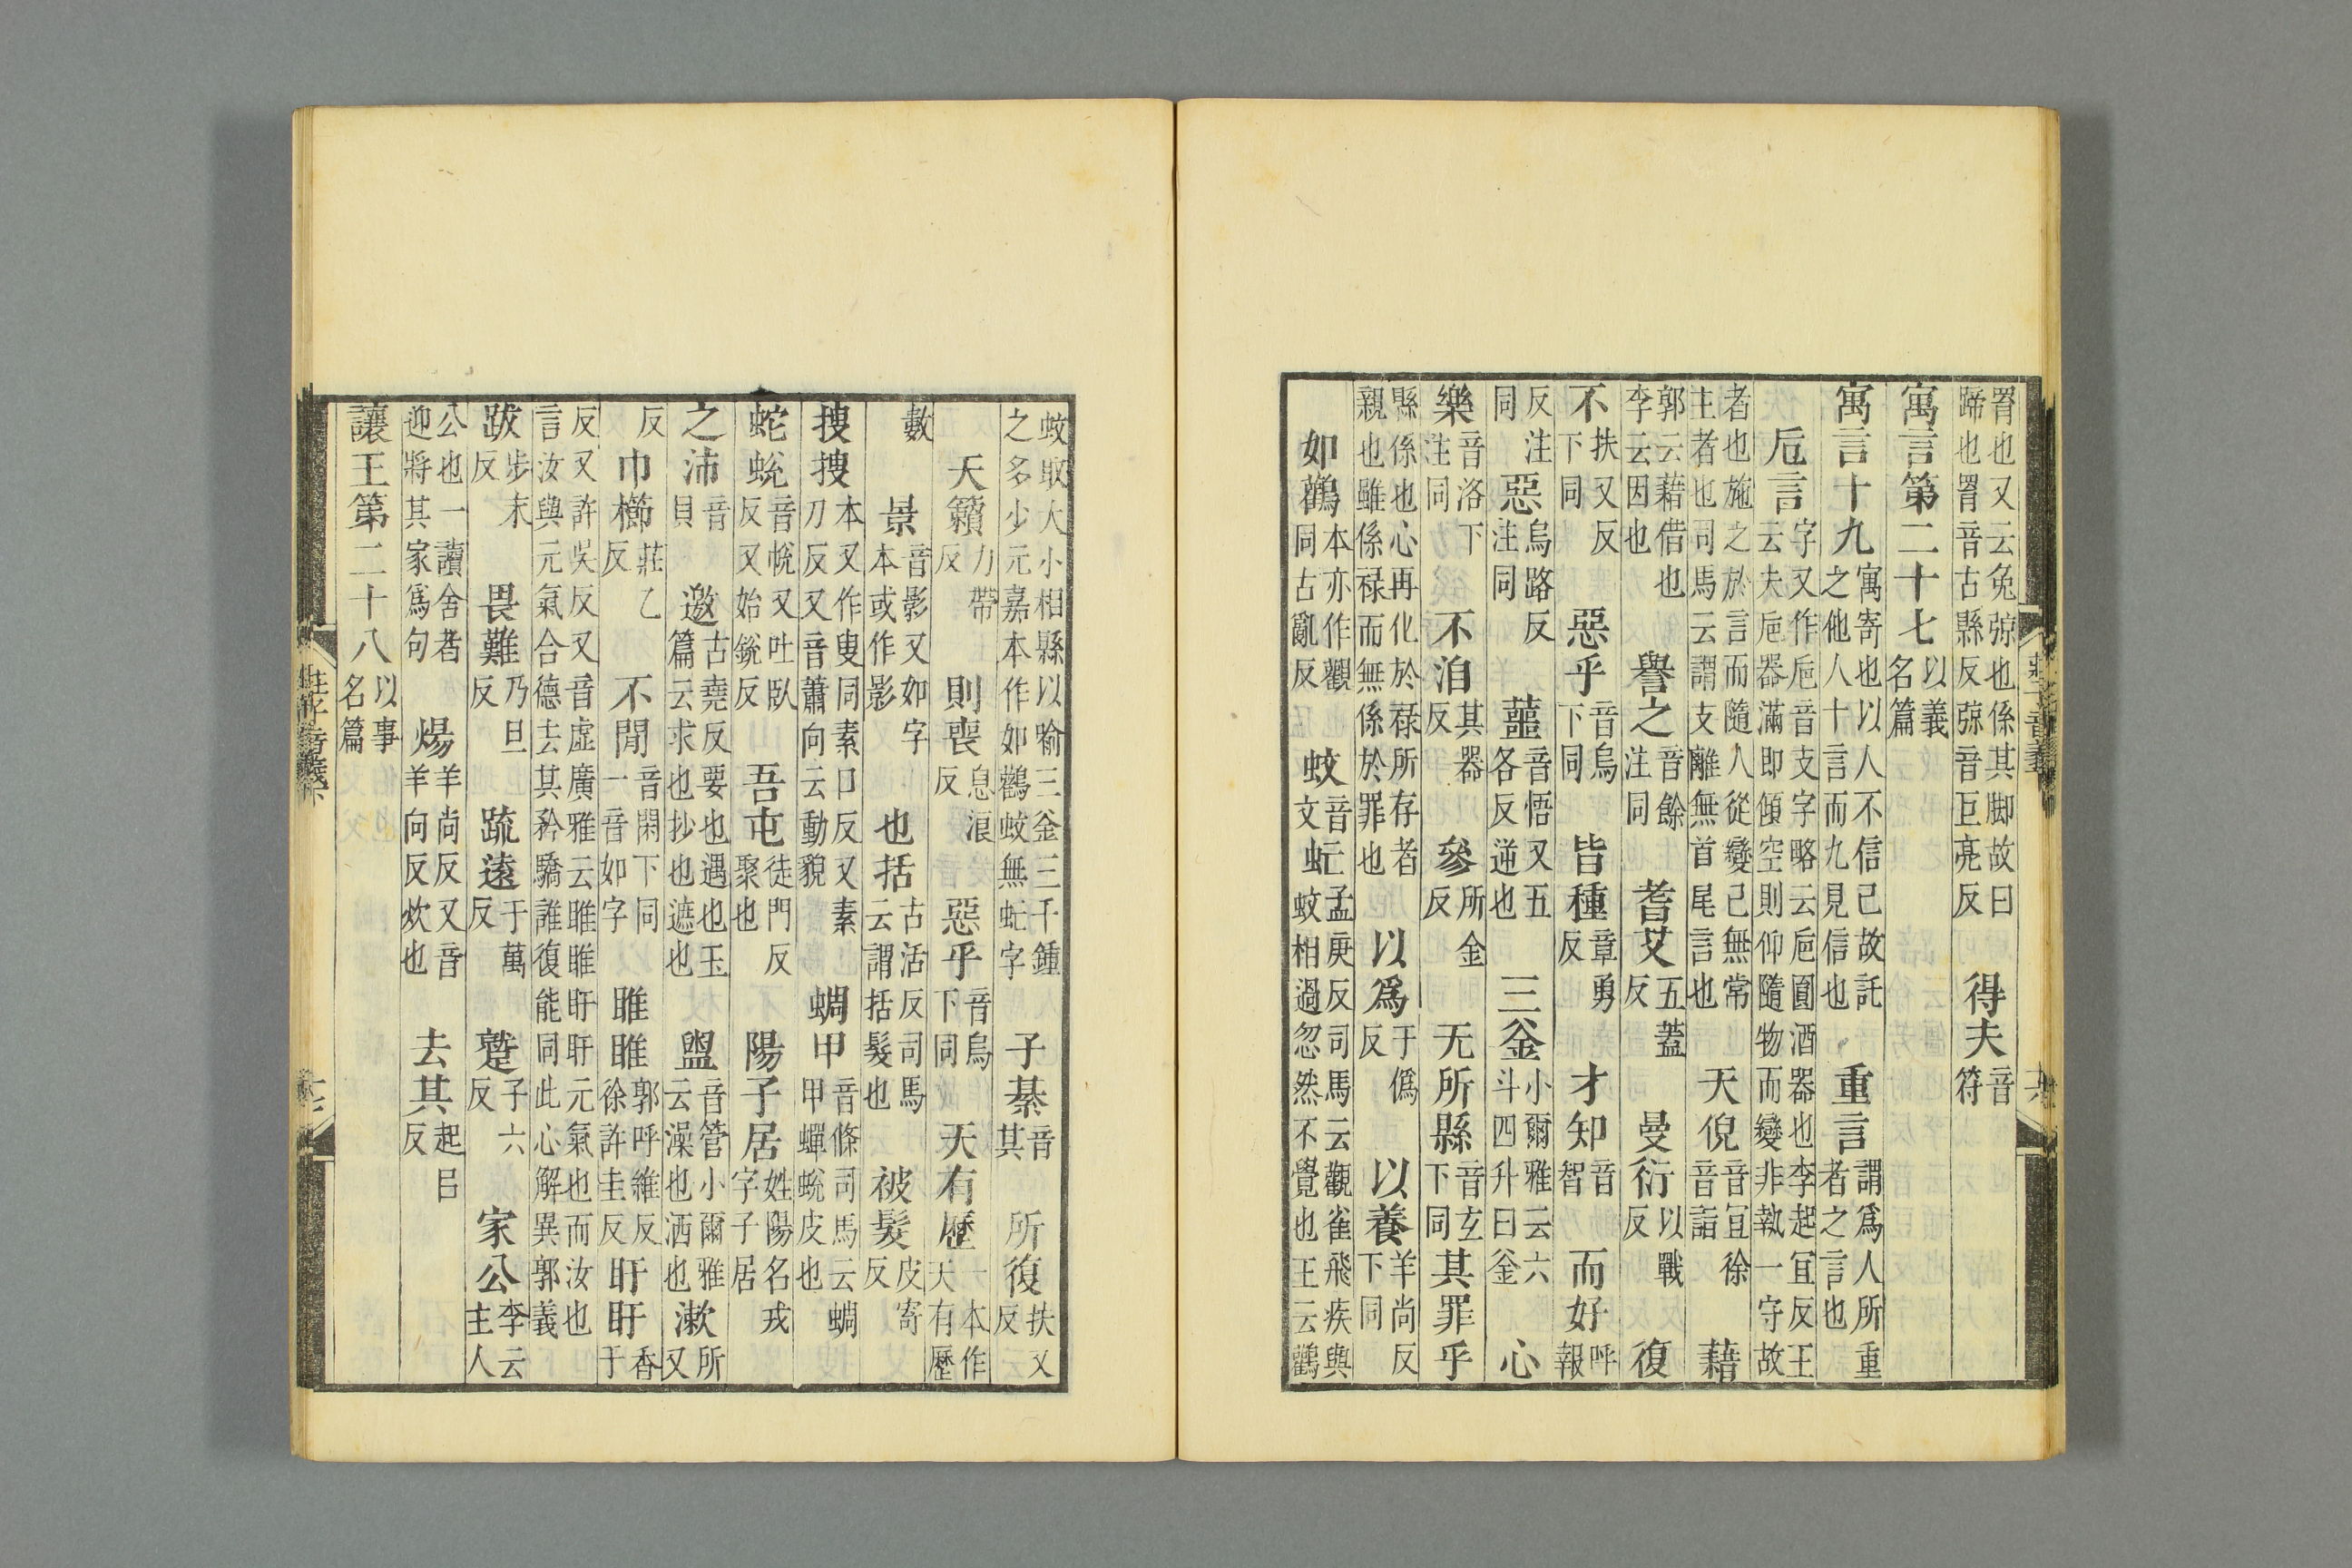 罥也又云兔弶也係其脚故曰蹄也罥音古縣反弶音巨亮反 得夫音符
寓言第二十七以義名篇
寓言十九寓寄也以人不信己故託之他人十言而九見信也 重言謂爲人所重者之言也
卮言字又作巵音支字略云巵圓酒器也李起宜反王云夫巵器滿即傾空則仰隨物而變非執一守故
者也施之於言而隨人從變己無常主者也司馬云謂支離無首尾言也 天倪音宜徐音詣 藉
郭云藉借也李云因也 譽之音餘注同 耆艾五蓋反 曼衍以戰反 復
不扶又反下同 惡乎音烏下同 皆種章勇反 才知音智 而好呼報
反注同 惡烏路反注同 蘁音悟又五各反逆也 三釜小爾雅云六斗四升曰釜 心
樂音洛下注同 不洎其器反 參所金反 无所縣音玄下同 其罪乎
縣係也心再化於禄所存者親也雖係禄而無係於罪也 以爲于僞反 以養羊尚反下同
如鸛本亦作觀同古亂反 蚊音文 虻孟庚反司馬云觀雀飛疾與蚊相過忽然不覺也王云鸛
蚊取大小相縣以喻三釜三千鍾之多少元嘉本作如鸛蚊無虻字 子綦音其 所復扶又反
天籟力帶反 則喪息浪反 惡乎音烏下同 天有歷一本作天有歷
數 景音影又如字本或作影 也括古活反司馬云謂括髮也 被髮皮寄反
搜搜本又作叟同素口反又素刀反又音蕭向云動貌 蜩甲音條司馬云蜩甲蟬蛻皮也
蛇蛻音悅又吐臥反又始銳反 吾屯徒門反聚也 陽子居姓陽名戎字子居
之沛音貝 邀古堯反要也遇也玉篇云求也抄也遮也 盥音管小爾雅云澡也洒也 漱所又
反 巾櫛莊乙反 不閒音閑下同一音如字 睢睢郭呼維反徐許圭反 盱盱香于
反又許吳反又音虛廣雅云睢睢盱盱元氣也而汝也言汝與元氣合德去其矜驕誰復能同此心解異郭義
跋步末反 畏難乃旦反 疏遠于萬反 蹵子六反 家公李云主人
公也一讀舍者迎將其家爲句 煬羊尚反又音羊向反炊也 去其起呂反
讓王第二十八以事名篇